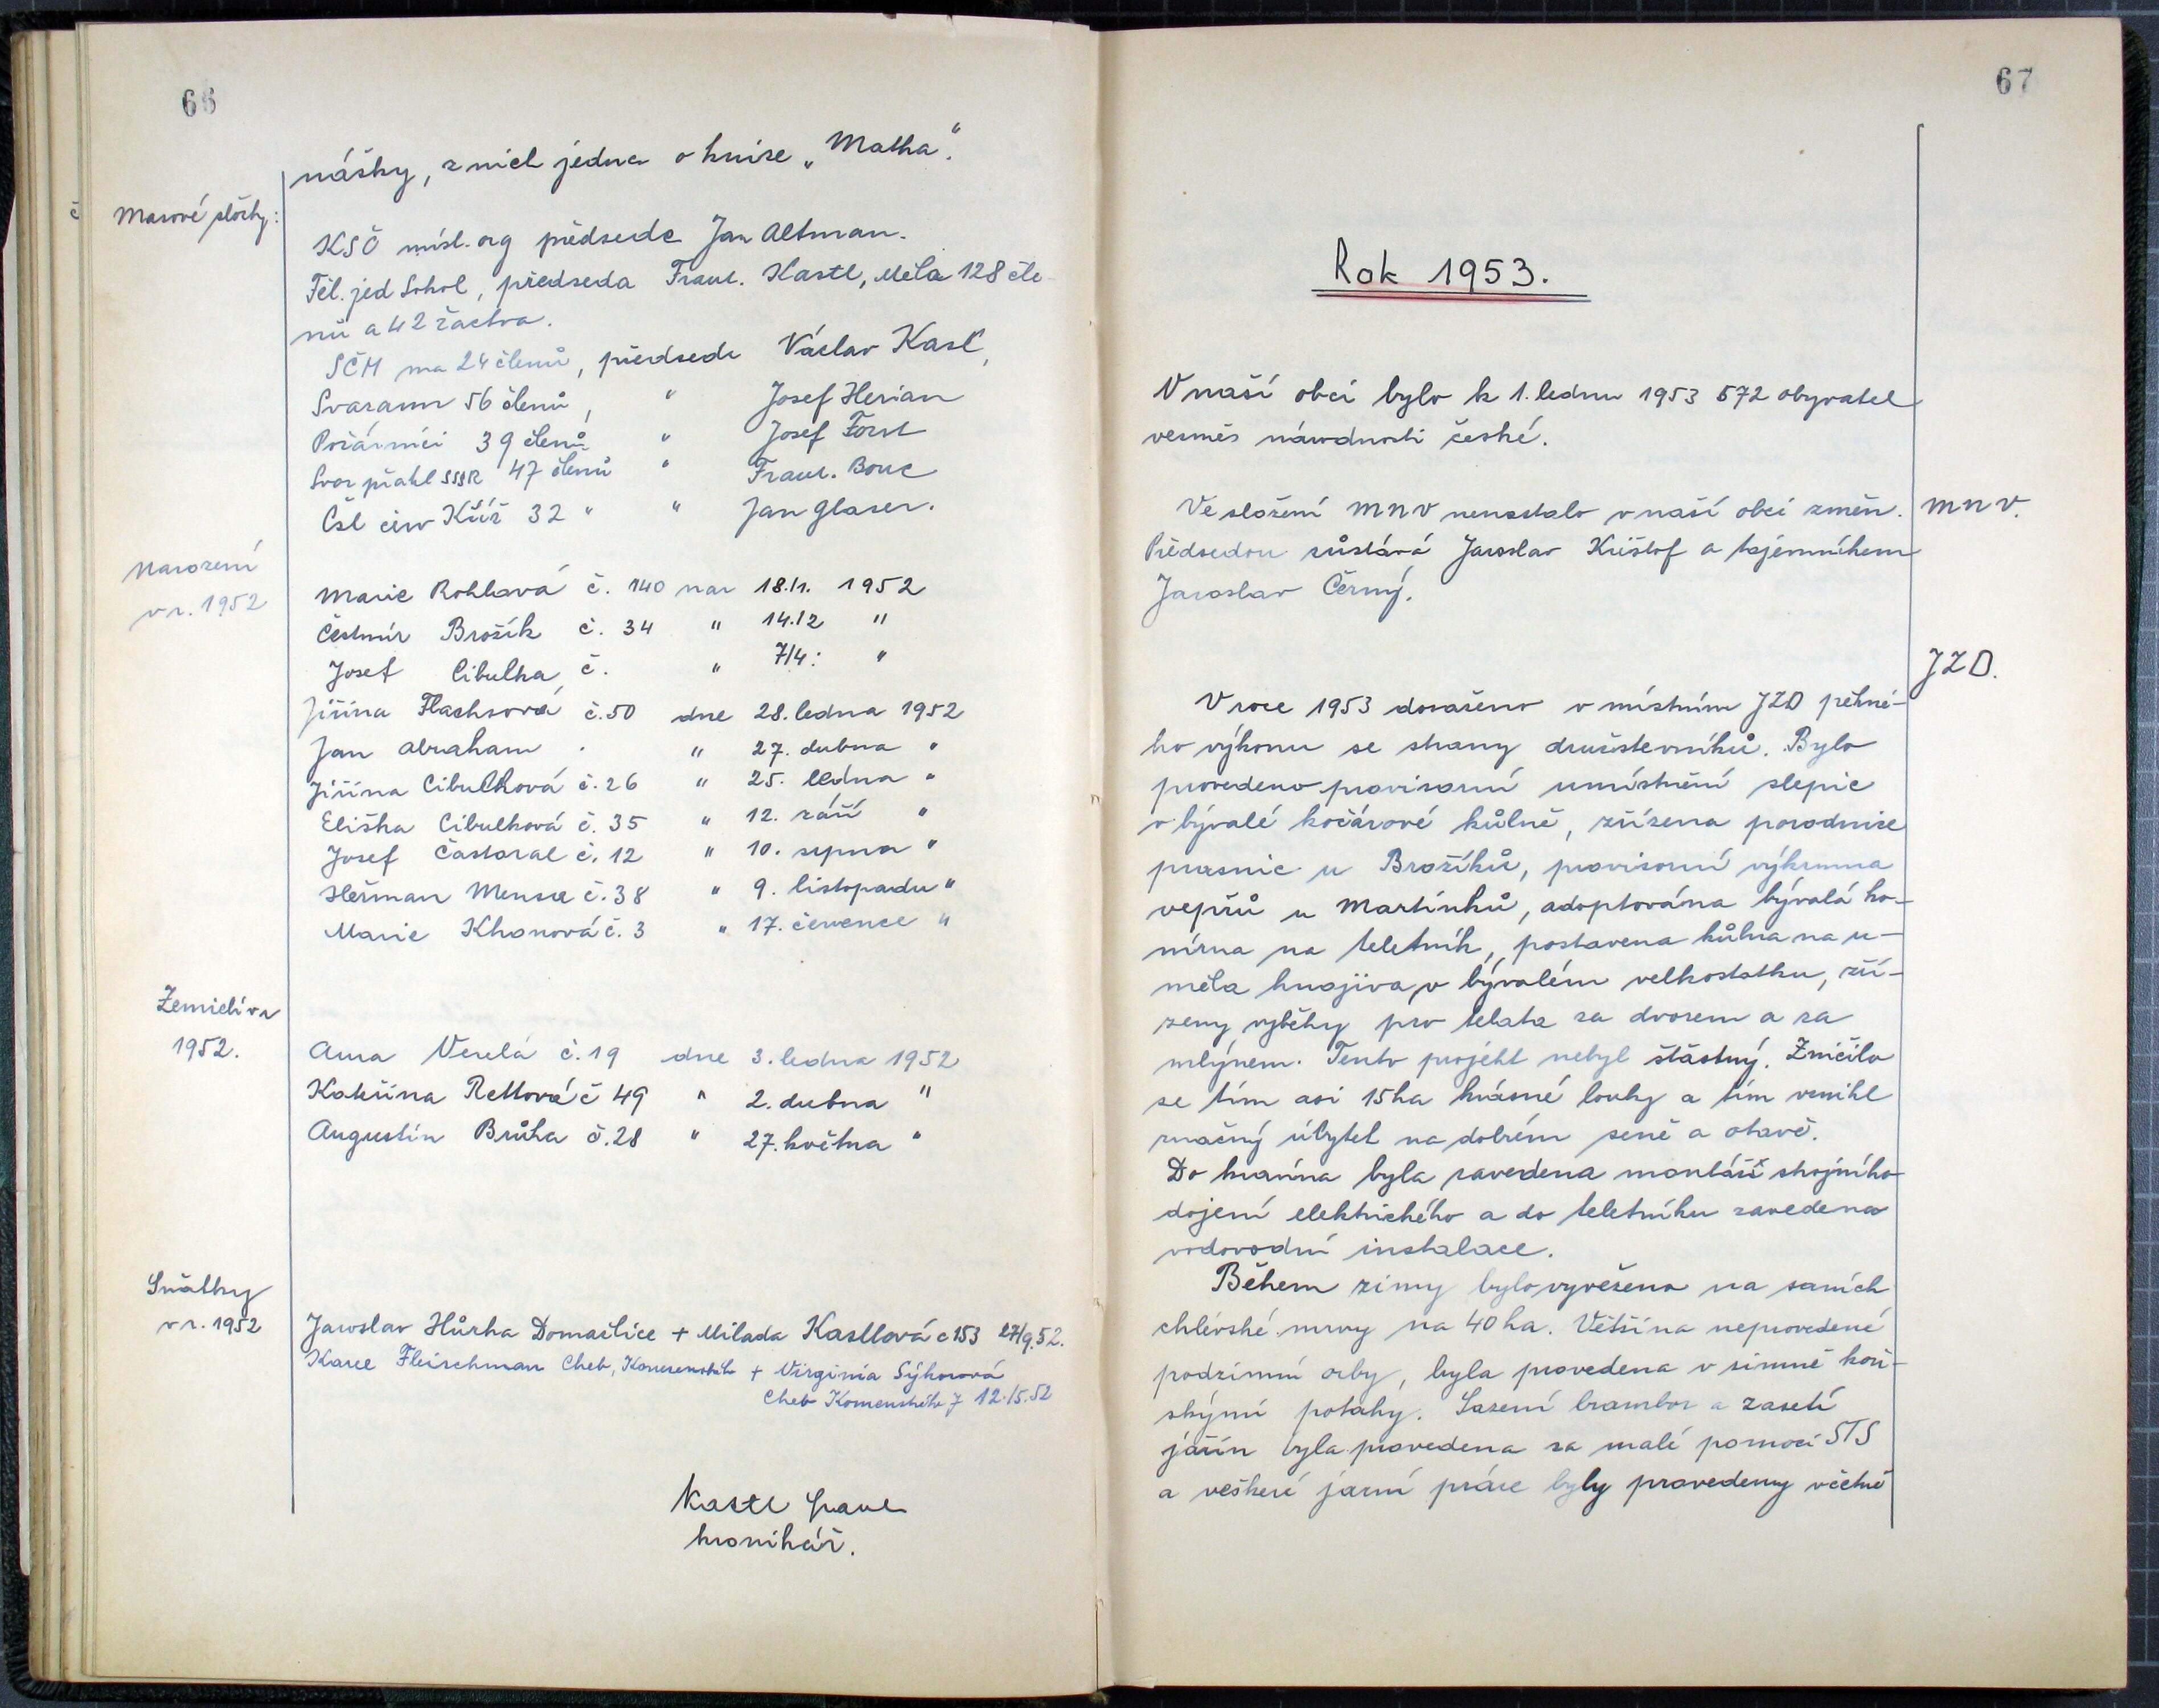 66
nášky, z nich jedna o knize „Matka“.
Masové složky:
KSČ míst. org předseda Jan Altman.
Těl. jed Sokol, předseda Frant. Kastl, měla 128 čle-
nů a 42 žactva.
SČM ma 24 členů, předseda Václav Kasl,
Svazarm 56 členů, " Josef Herian
Požárníci 39 členů " Josef Forst
Svaz přátel SSSR 47 členů " Frant. Bouc
Čsl červ Kříž 32 " " Jan Glaser.
Narození
v r. 1952
Marie Rohlová č. 140 nar 18./1. 1952
Čestmír Brožík č. 34 " 14./2 "
Josef Cibulka č. " 7/4: "
Jiřina Flachsová č. 50 dne 28. ledna 1952
Jan Abraham . " 27. dubna "
Jiřina Cibulková č. 26 " 25. ledna "
Eliška Cibulková č. 35 " 12. září "
Josef Častoral č. 12 " 10. srpna "
Heřman Mensa č. 38 " 9. listopadu "
Marie Khonová č. 3 " 17. července "
Zemřelí v r
1952.
Anna Veselá č. 19 dne 3. ledna 1952
Kateřina Rettová č 49 " 2. dubna "
Augustin Brůha č. 28 " 27. května "
Sňatky
v r. 1952
Jaroslav Hůrka Domažlice + Milada Kastlová č 153 27/9.52.
Karel Fleischman Cheb, Komenského + Virginia Sýkorová
Cheb Komenského 7 12./5.52
Kastl Pavel
kronikář.
67
Rok 1953.
V naší obci bylo k 1. lednu 1953 572 obyvatel
vesměs národnosti české.
Ve složení MNV nenastalo v naší obci změn. MNV.
Předsedou zůstává Jaroslav Krištof a tajemníkem
Jaroslav Černý.
JZD.
V roce 1953 dosaženo v místním JZD pěkné-
ho výkonu se strany družstevníků. Bylo
provedeno provisorní umístnění slepic
v bývalé kočárové kůlně, zřízena porodnice
prasnic u Brožíků, provisorní výkrmna
vepřů u Martínků, adoptována bývalá ko-
nírna na teletník, postavena kůlna na u-
měla hnojiva v bývalém velkostatku, zří-
zeny výběhy pro telata za dvorem a za
mlýnem. Tento projekt nebyl štástný. Zničilo
se tím asi 15 ha krásné louky a tím vznikl
značný úbytek na dobrém seně a otavě.
Do kravína byla zavedena montáší strojního
dojení elektrického a do teletníku zavedena
vodovodní instalace.
Během zimy bylo vyvěseno na saních
chlévské mrvy na 40 ha. Většina neprovedené
podzimní orby, byla provedena v zimně koň-
skými potahy. Sazení brambor a zasetí
jařin byla provedena za malé pomoci STS
a veškeré jarní práce byly provedeny včetně